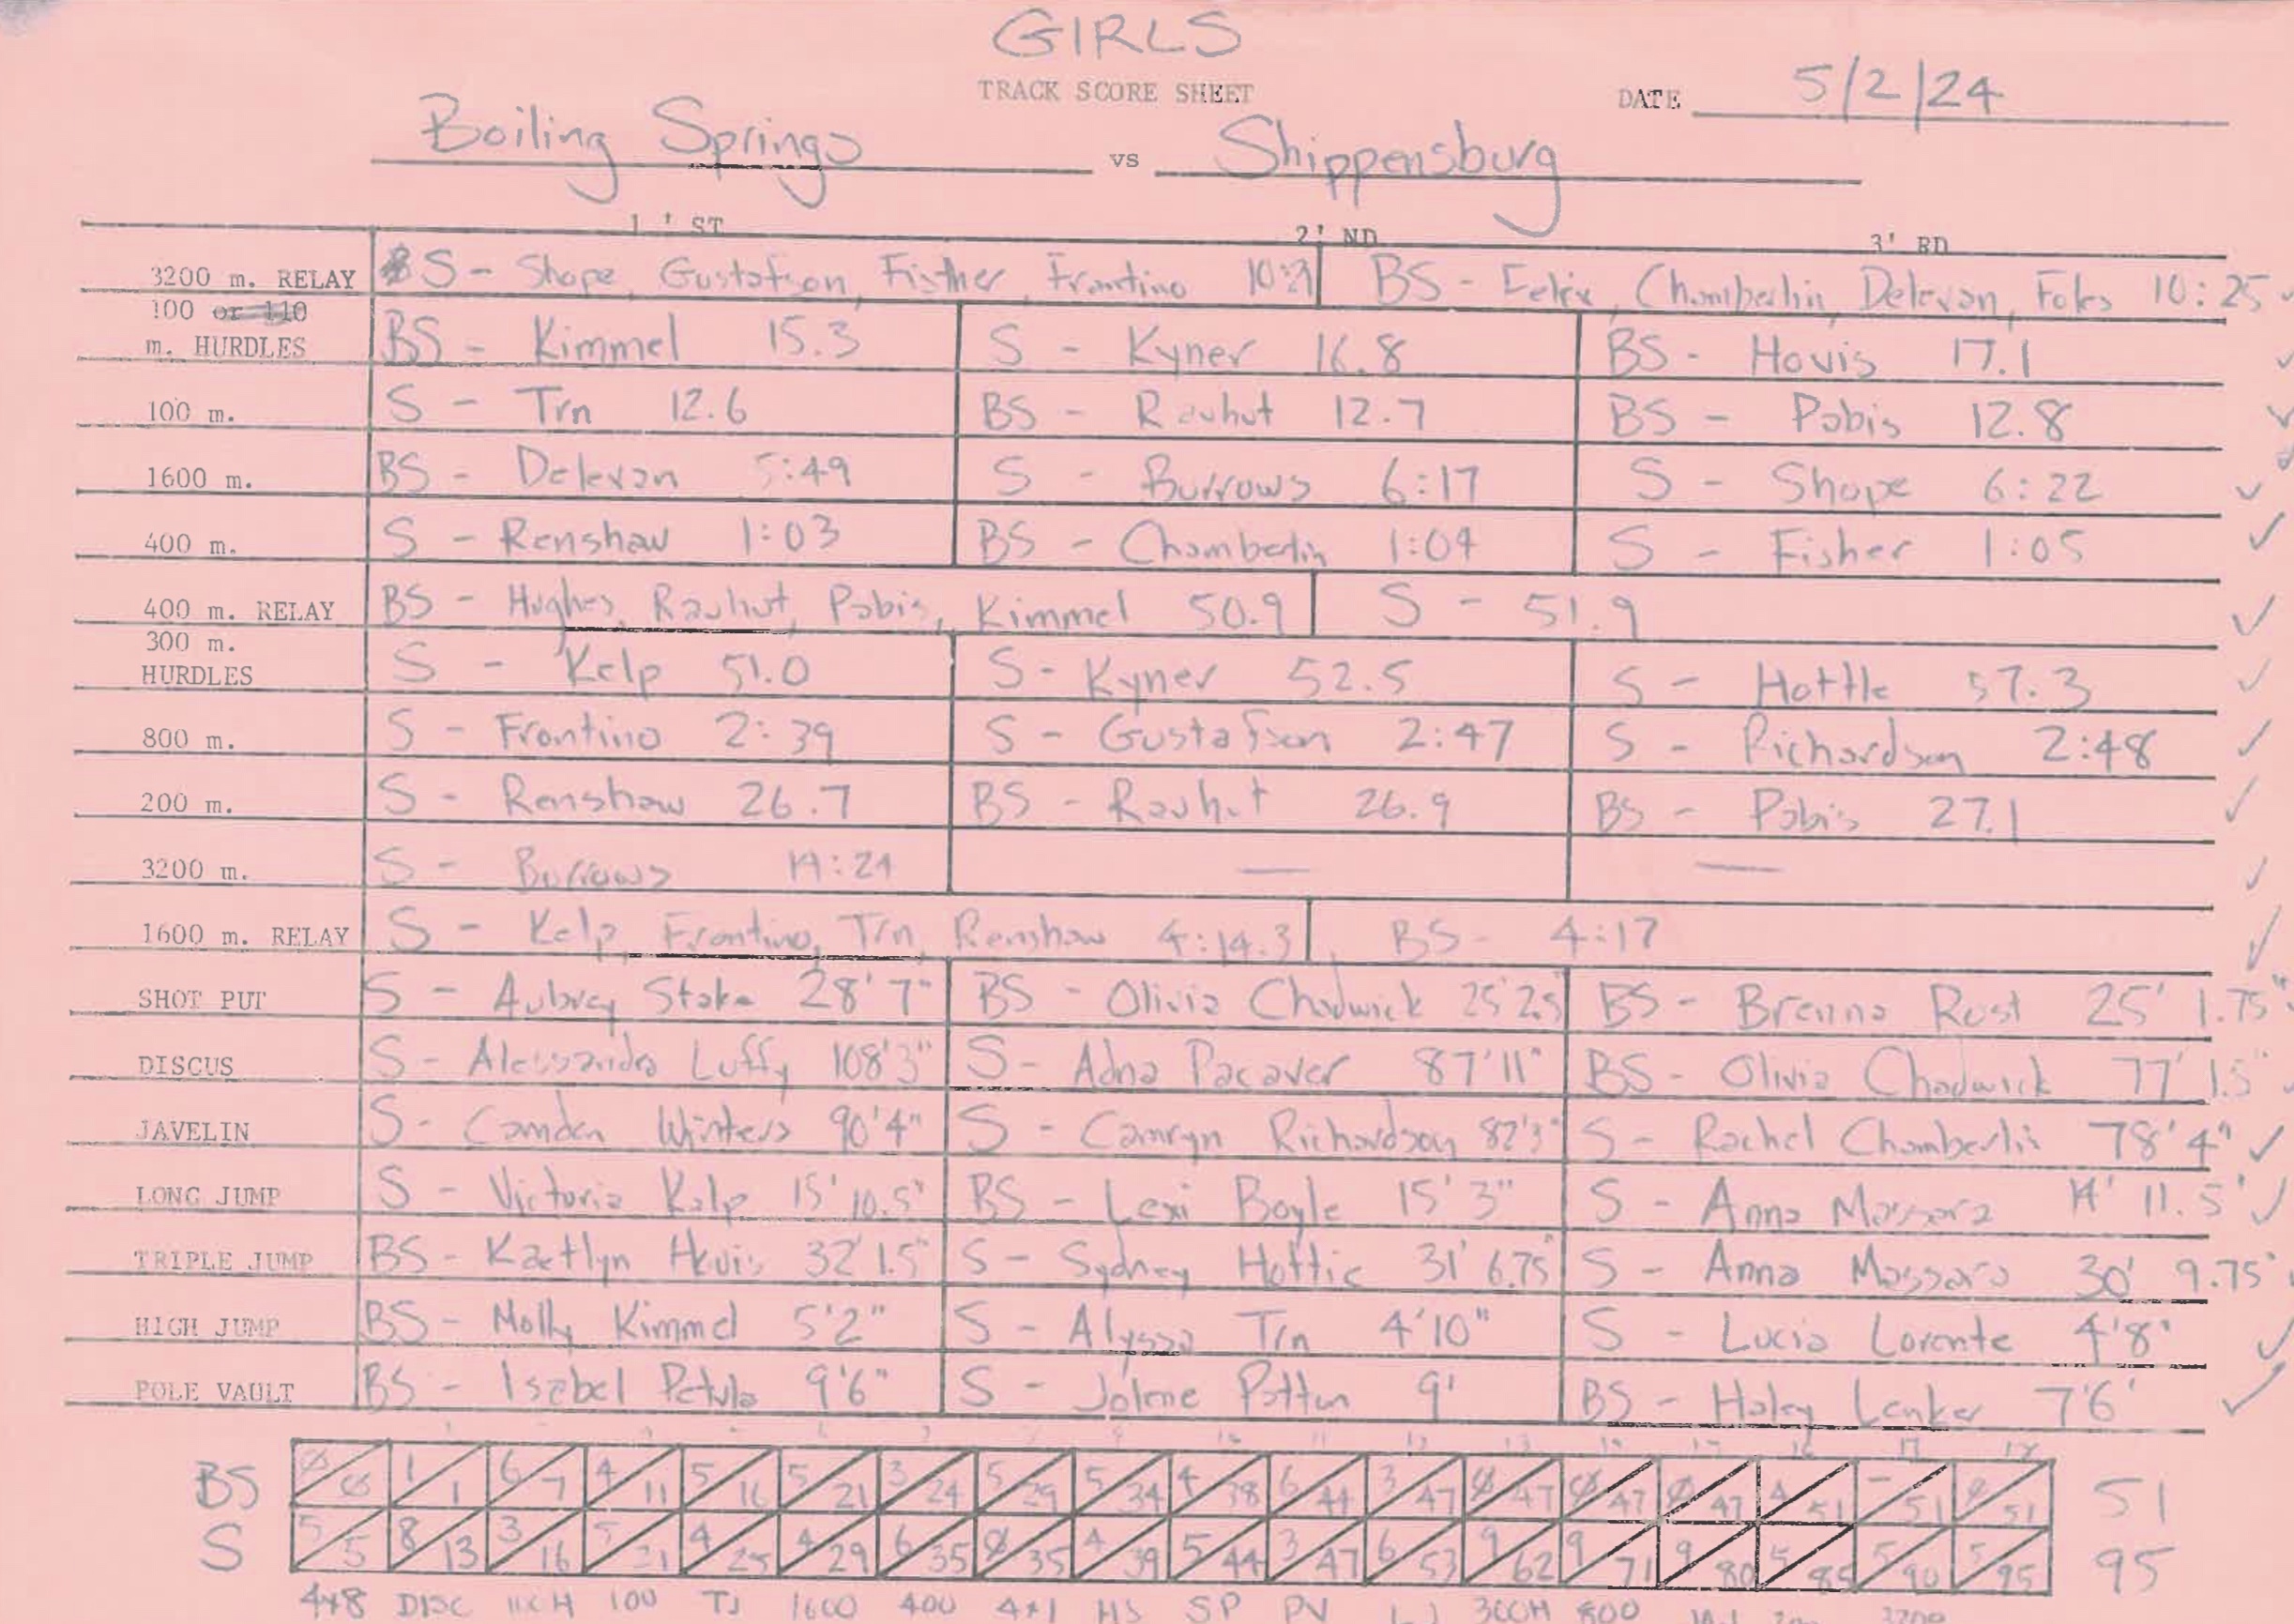 GIRLS
TRACK SCORE SHEET
DATE 5/2/24
Boiling Springs vs Shippensburg
1'ST 2'ND 3'RD
3200 m. RELAY S - Shope, Gustafson, Fisher, Frontino BS - Felix, Chamberlin, Delevan, Foks 10:25
100 or 110
m. HURDLES BS - Kimmel 15.3 S - Kyner 16.8 BS - Hovis 17.1
100 m. S - Trn 12.6 BS - Rauhut 12.7 BS - Pabis 12.8
1600 m. BS - Delevan 5:49 S - Burrows 6:17 S - Shope 6:22
400 m. S - Renshaw 1:03 BS - Chamberlin 1:04 S - Fisher 1:05
400 m. RELAY BS - Hughes, Rauhut, Pabis, Kimmel 50.9 S - 51.9
300 m.
HURDLES S - Kelp 51.0 S - Kyner 52.5 S - Hottle 57.3
800 m. S - Frontino 2:39 S - Gustafson 2:47 S - Richardson 2:48
200 m. S - Renshaw 26.7 BS - Rauhut 26.9 BS - Pabis 27.1
3200 m. S - Burrows 14:24 — —
1600 m. RELAY S - Kelp, Frontino, Trn, Renshaw 4:14.3 BS - 4:17
SHOT PUT S - Aubrey Stake 28'7" BS - Olivia Chadwick 25'2.5 BS - Brenna Rost 25' 1.75"
DISCUS S - Alessandra Luffy 108'3" S - Adna Pacaver 87'11" BS - Olivia Chadwick 77' 1.5"
JAVELIN S - Camden Winters 90'4" S - Camryn Richardson 82'3" S - Rachel Chamberlin 78'4"
LONG JUMP S - Victoria Kelp 15' 10.5" BS - Lexi Boyle 15' 3" S - Anna Massara 14' 11.5"
TRIPLE JUMP BS - Kaetlyn Hovis 32' 1.5" S - Sydney Hottle 31' 6.75" S - Anna Massara 30' 9.75"
HIGH JUMP BS - Molly Kimmel 5'2" S - Alyssa Trn 4'10" S - Lucia Lorente 4'8"
POLE VAULT BS - Isabel Petula 9'6" S - Jolene Potten 9' BS - Haley Lenker 7'6"
BS 0/0 1/1 6/7 4/11 5/16 5/21 3/24 5/29 5/34 4/38 6/44 3/47 0/47 0/47 0/47 4/51 -/51 0/51 51
S 5/5 8/13 3/16 5/21 4/25 4/29 6/35 0/35 4/39 5/44 3/47 6/53 9/62 9/71 9/80 5/85 5/90 5/95 95
4x8 DISC 100H 100 TJ 1600 400 4x1 HJ SP PV LJ 300H 800 JAV 200 3200